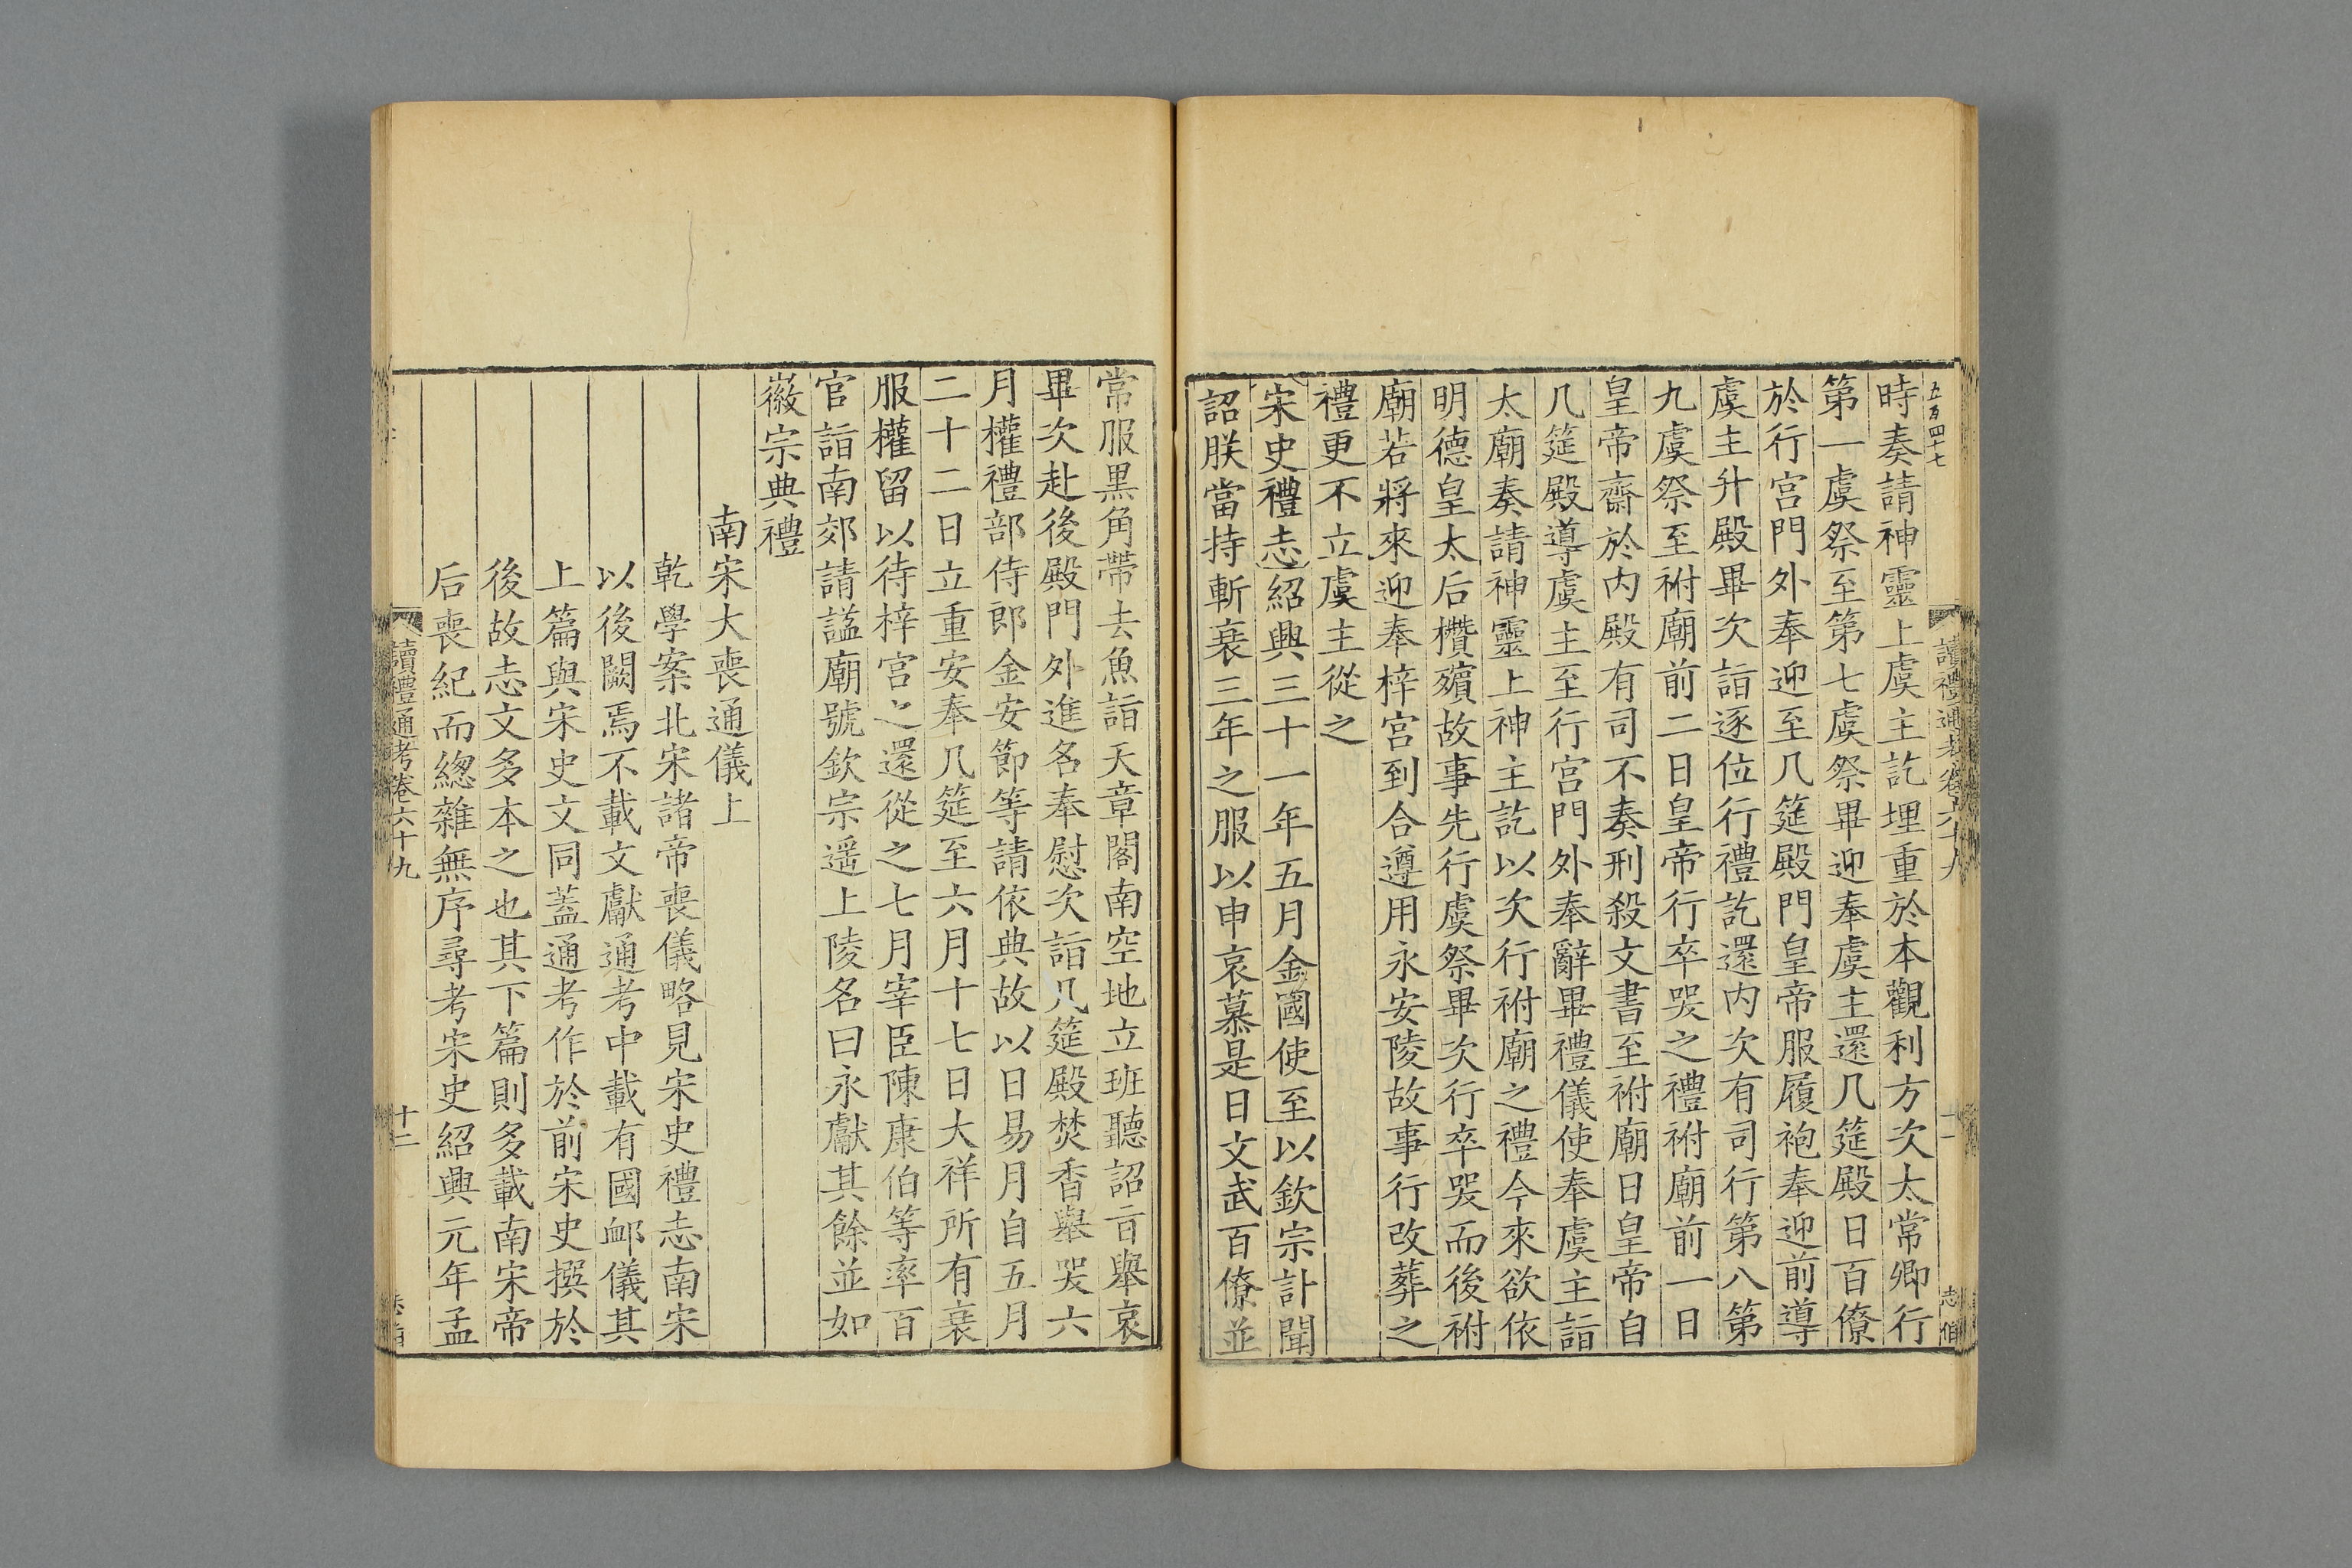 五百四十七
時奏請神靈上虞主訖埋重於本觀利方次太常卿行
第一虞祭至第七虞祭畢迎奉虞主還几筵殿日百僚
於行宮門外奉迎至几筵殿門皇帝服履袍奉迎前導
虞主升殿畢次詣逐位行禮訖還内次有司行第八第
九虞祭至祔廟前二日皇帝行卒哭之禮祔廟前一日
皇帝齋於内殿有司不奏刑殺文書至祔廟日皇帝自
几筵殿導虞主至行宮門外奉辭畢禮儀使奉虞主詣
太廟奏請神靈上神主訖以次行祔廟之禮今來欲依
明德皇太后欑殯故事先行虞祭畢次行卒哭而後祔
廟若將來迎奉梓宮到合遵用永安陵故事行改葬之
禮更不立虞主從之
宋史禮志紹興三十一年五月金國使至以欽宗訃聞
詔朕當持斬衰三年之服以申哀慕是日文武百僚並
常服黒角帶去魚詣天章閣南空地立班聽詔㫖舉哀
畢次赴後殿門外進名奉慰次詣几筵殿焚香舉哭六
月權禮部侍郎金安節等請依典故以日易月自五月
二十二日立重安奉几筵至六月十七日大祥所有衰
服權留以待梓宮之還從之七月宰臣陳康伯等率百
官詣南郊請諡廟號欽宗遥上陵名曰永獻其餘並如
徽宗典禮
南宋大喪通儀上
乾學案北宋諸帝喪儀略見宋史禮志南宋
以後闕焉不載文獻通考中載有國卹儀其
上篇與宋史文同蓋通考作於前宋史撰於
後故志文多本之也其下篇則多載南宋帝
后喪紀而緫雜無序尋考宋史紹興元年孟
讀禮通考卷六十九
十二